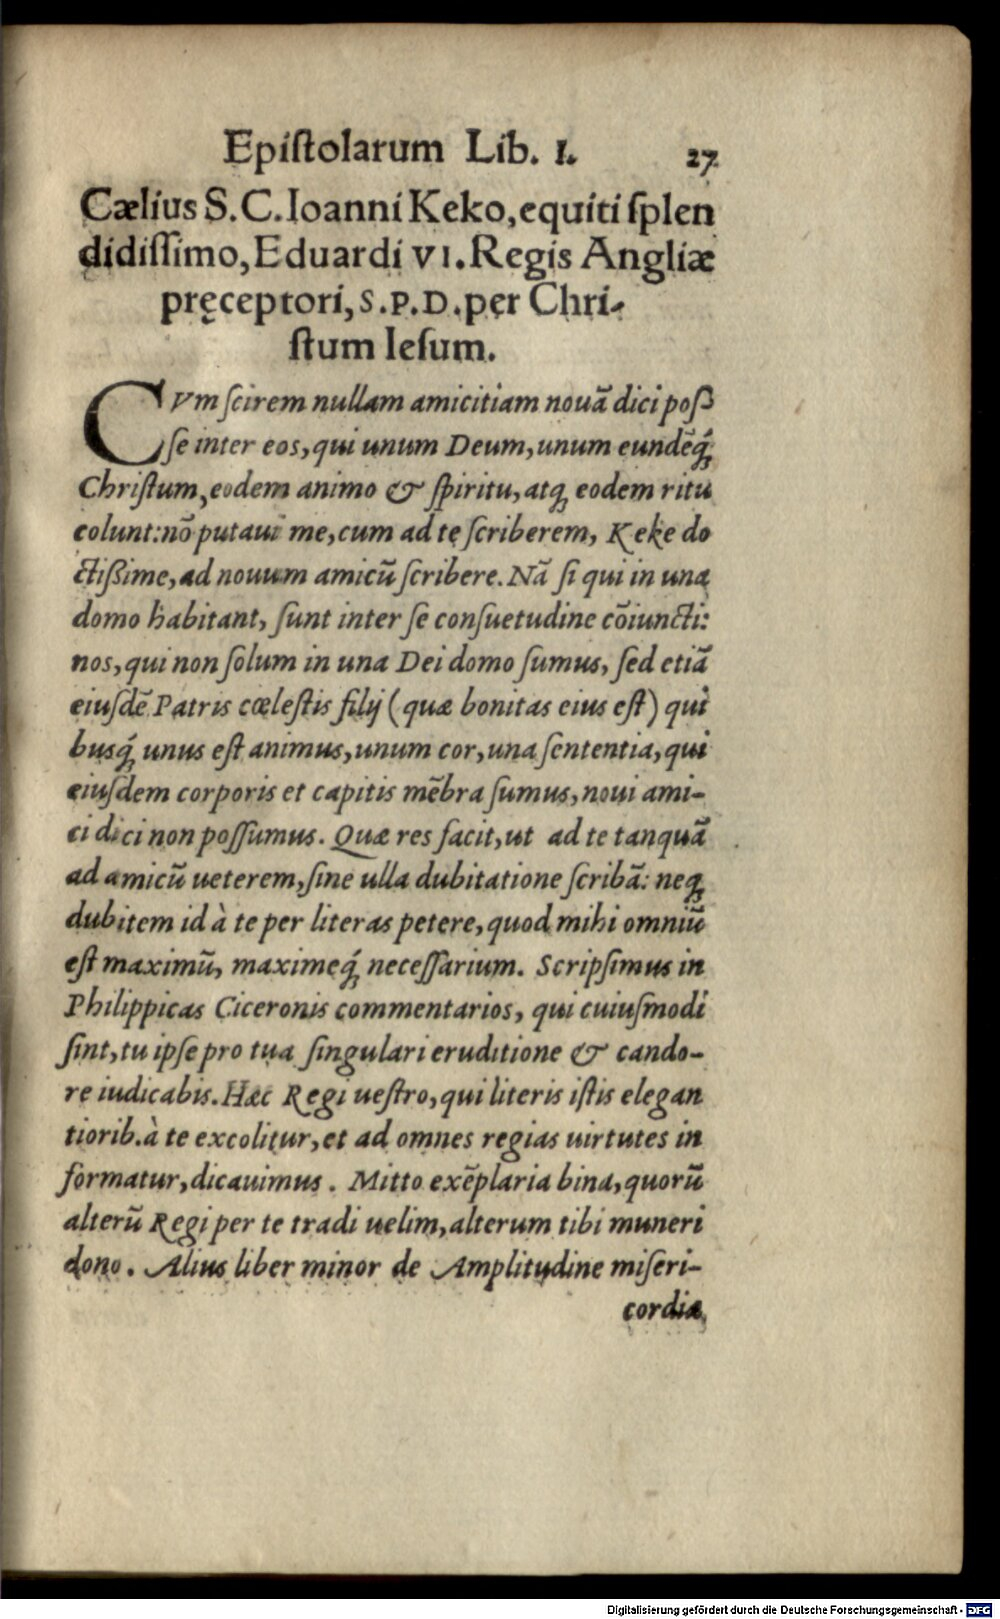 Epiſtolarum Lib. I. 27
Cælius S.C. Ioanni Keko, equiti ſplen
didiſſimo, Eduardi VI. Regis Angliæ
pręceptori, S.P.D. per Chri-
ſtum Ieſum.
CVm ſcirem nullam amicitiam nouā dici poſſ
ſe inter eos, qui unum Deum, unum eundēq́;
Chriſtum, eodem animo & ſpiritu, atq; eodem ritu
colunt: nō putaui me, cum ad te ſcriberem, Keke do
ctißime, ad nouum amicū ſcribere. Nā ſi qui in una
domo habitant, ſunt inter ſe conſuetudine cōiuncti:
nos, qui non ſolum in una Dei domo ſumus, ſed etiā
eiuſdē Patris cœleſtis filij (quæ bonitas eius eſt) qui
buſq́; unus eſt animus, unum cor, una ſententia, qui
eiuſdem corporis et capitis mēbra ſumus, noui ami-
ci dici non poſſumus. Quæ res facit, ut ad te tanquā
ad amicū ueterem, ſine ulla dubitatione ſcribā: neq;
dubitem id à te per literas petere, quod mihi omniū
eſt maximū, maximeq́; neceſſarium. Scripſimus in
Philippicas Ciceronis commentarios, qui cuiuſmodi
ſint, tu ipſe pro tua ſingulari eruditione & cando-
re iudicabis. Hæc Regi ueſtro, qui literis iſtis elegan
tiorib. à te excolitur, et ad omnes regias uirtutes in
formatur, dicauimus. Mitto exēplaria bina, quorū
alterū Regi per te tradi uelim, alterum tibi muneri
dono. Alius liber minor de Amplitudine miſeri-
cordiæ
Digitalisierung gefördert durch die Deutsche Forschungsgemeinschaft - DFG